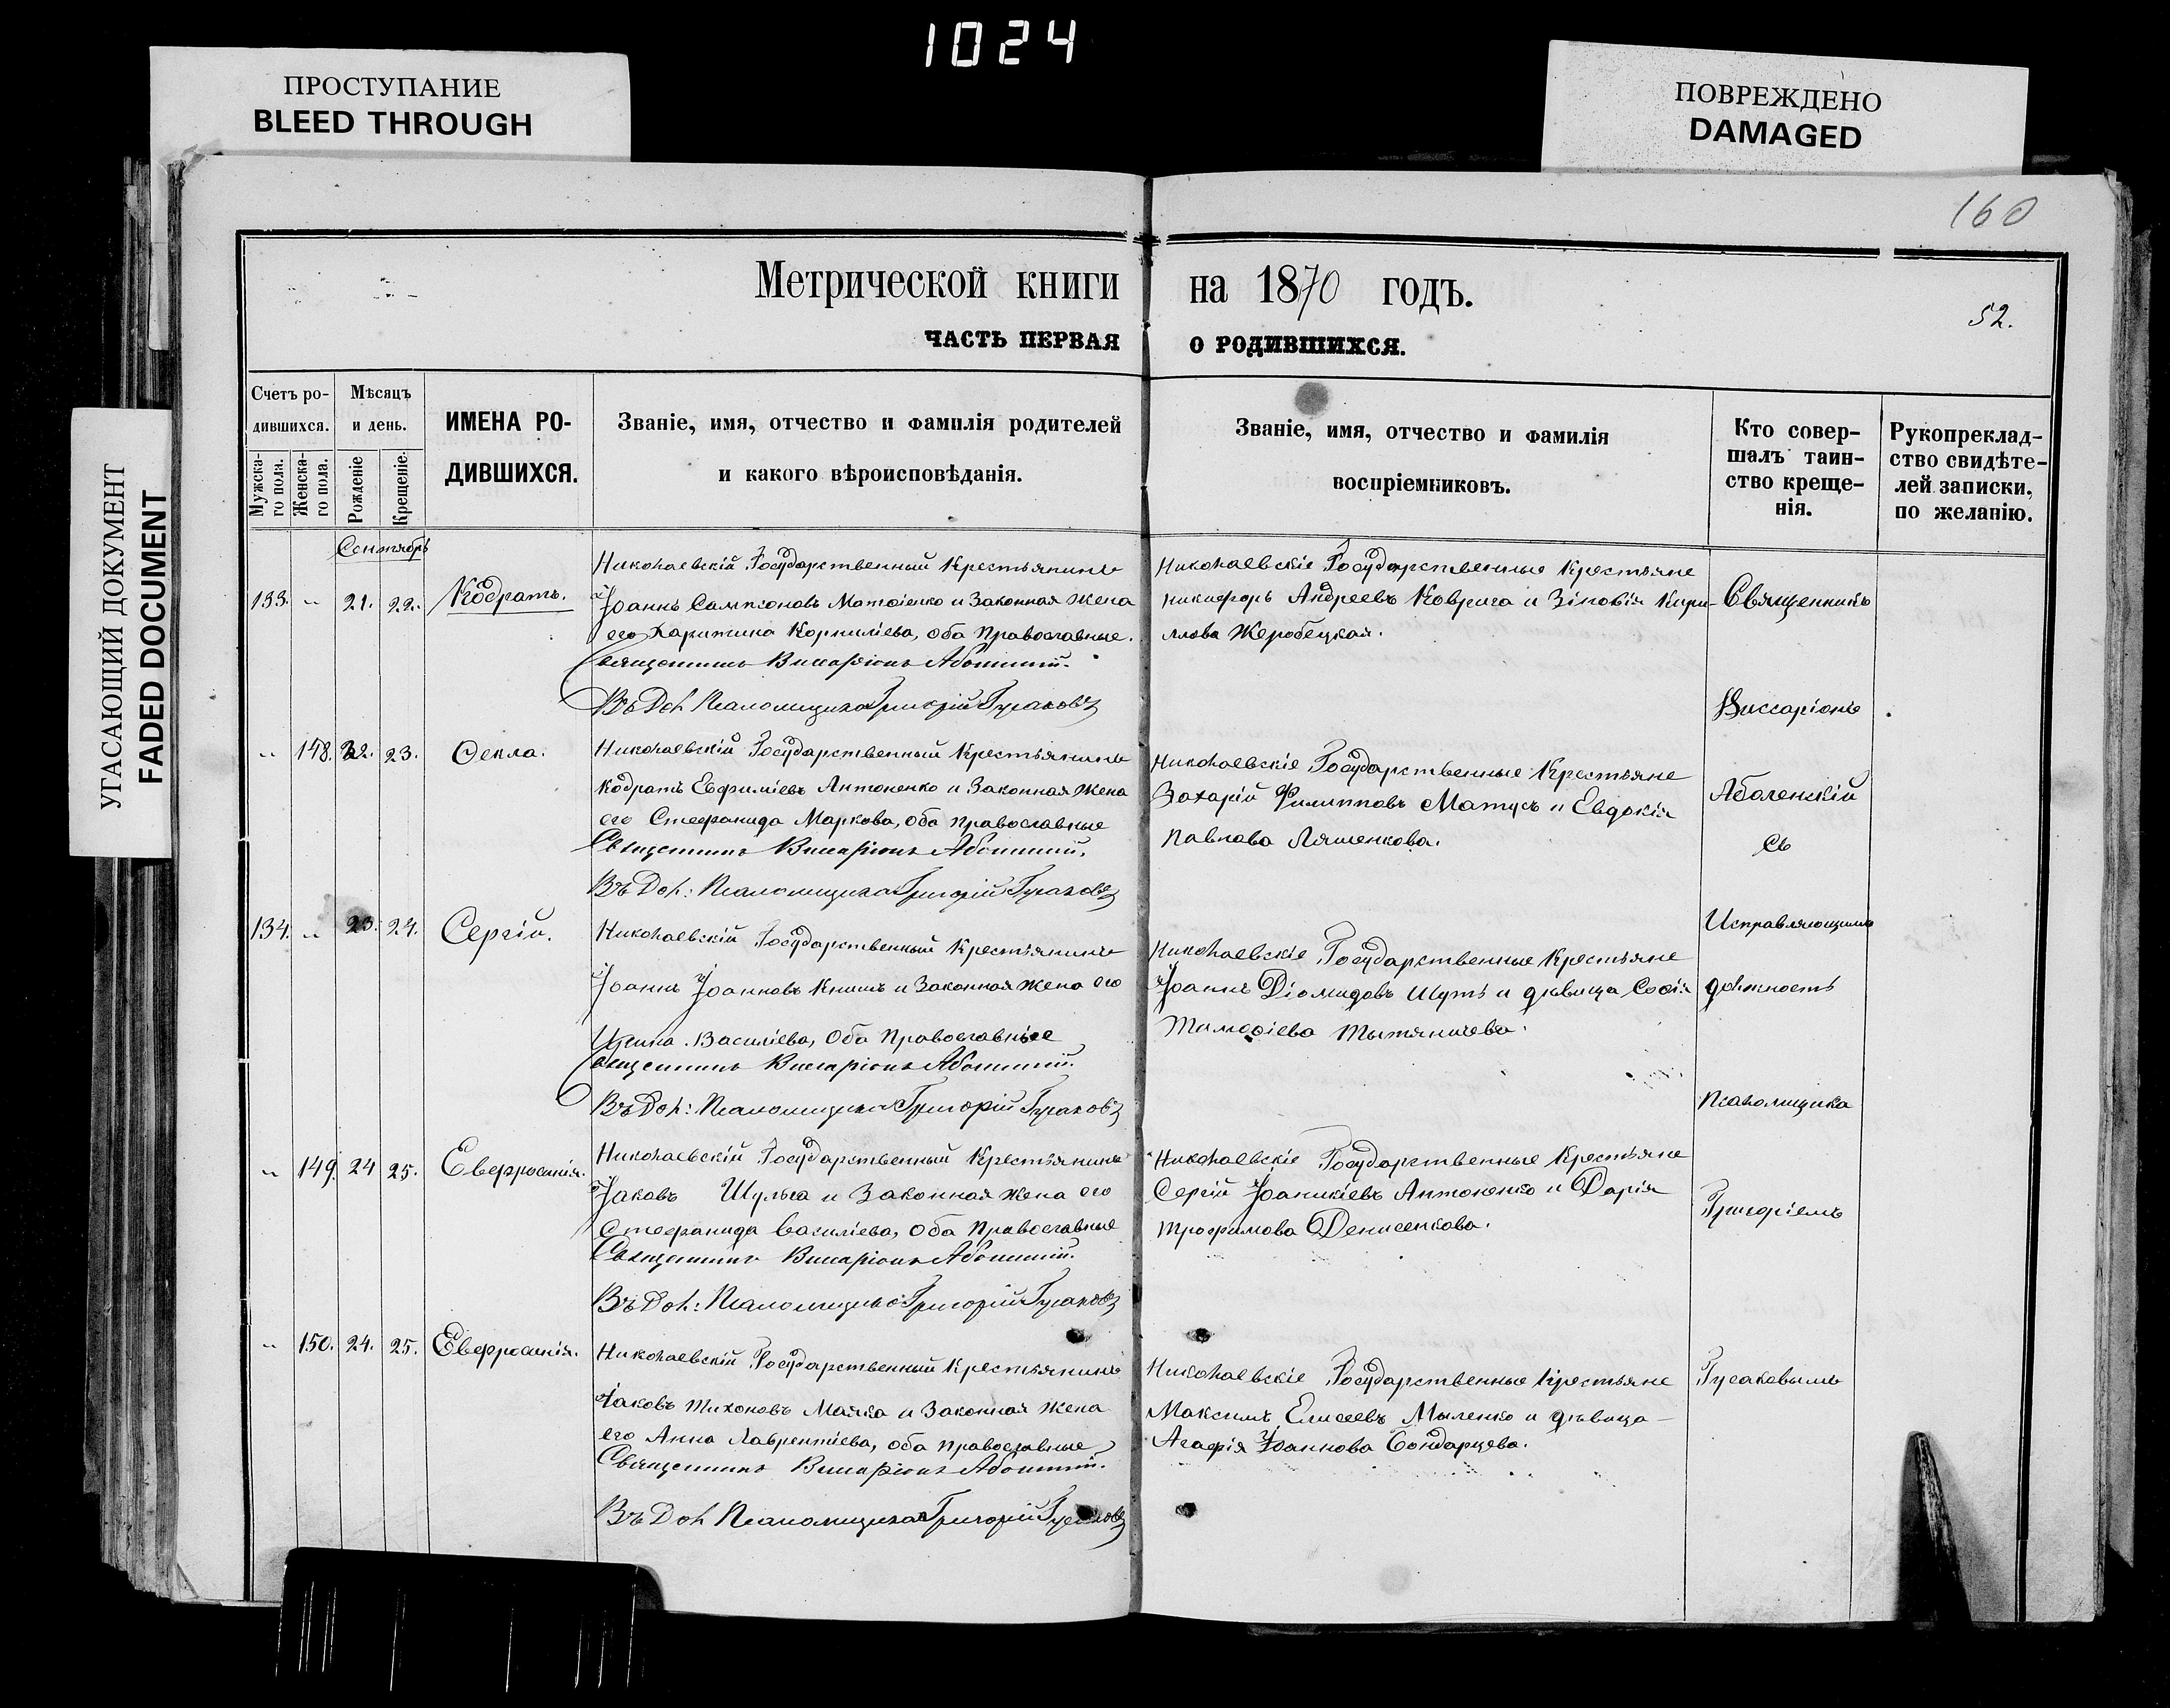 1024
ПРОСТУПАНИЕ
BLEED THROUGH
ПОВРЕЖДЕНО
DAMAGED
УГАСАЮЩИЙ ДОКУМЕНТ
FADED DOCUMENT
160
Метрической книги на 1870 годъ.
52.
ЧАСТЬ ПЕРВАЯ О РОДИВШИХСЯ.
Счетъ ро-
дившихся.
Мужска-
го пола.
Женска-
го пола.
Мѣсяцъ
и день.
Рожденіе
Крещеніе.
ИМЕНА РО-
ДИВШИХСЯ.
Званіе, имя, отчество и фамилія родителей
и какого вѣроисповѣданія.
Званіе, имя, отчество и фамилія
воспріемниковъ.
Кто совер-
шалъ таин-
ство креще-
нія.
Рукоприклад-
ство свидѣте-
лей записки,
по желанію.
Сентябрь
133. " 21. 22. Кодратъ.
Николаевскій Государственный Крестьянинъ
Іоаннъ Сампсоновъ и Законная жена
его Харитина Корниліева, оба Православные.
Священникъ Виссаріонъ Аболенскій.
Въ Дол Псаломщика Григорій Гусаковъ
Николаевскіе Государственные Крестьяне
Никифоръ Андреевъ Коврига и Зіновія Кири-
ллова Жеробецкая.
" 148. 22. 23. Ѳекла.
Николаевскій Государственный Крестьянинъ
Кодратъ Евфиміевъ Антоненко и Законная жена
его Стефанида Маркова, оба православные
Священникъ Виссаріонъ Аболенскій.
Въ Дол: Псаломщика Григорій Гусаковъ
Николаевскіе Государственные Крестьяне
Захарій Филипповъ Матусь и Евдокія
Павлова Ляшенкова.
134. " 23. 24. Сергій.
Николаевскій Государственный Крестьянинъ
Іоаннъ Іоанновъ Книшъ и Законная жена его
Ирина Василіева, Оба Православные
Священникъ Виссаріонъ Аболенскій.
Въ Дол: Псаломщика Григорій Гусаковъ
Николаевскіе Государственные Крестьяне
Іоаннъ Діомидовъ Шуть и дѣвица Софія
Тимофіева
" 149. 24 25. Евфросинія.
Николаевскій Государственный Крестьянинъ
Іаковъ Шульга и Законная жена его
Стефанида Василіева, Оба Православные
Священникъ Виссаріонъ Аболенскій.
Въ Дол: Псаломщика Григорій Гусаковъ
Николаевскіе Государственные Крестьяне
Сергій Іоаникіевъ Антоненко и Дарія
Трофимова Денисенкова.
" 150. 24. 25. Евфросинія.
Николаевскій Государственный Крестьянинъ
Іаковъ Тихоновъ Маяка и Законная жена
его Анна Лаврентіева, оба православные
Священникъ Виссаріонъ Аболенскій.
Въ Дол Псаломщика Григорій Гусаковъ
Николаевскіе Государственные Крестьяне
Максимъ Елисеевъ Мыленко и дѣвица
Агафія Іоаннова Бондарцева.
Священникъ
Виссаріонъ
Аболенскій
съ
Исправляющимъ
должность
Псаломщика
Григоріемъ
Гусаковымъ